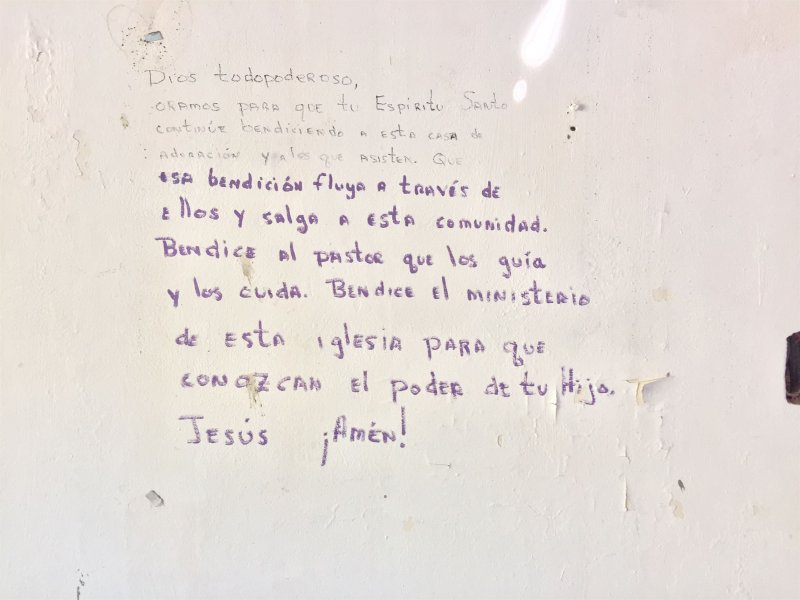 Dios todopoderoso,
oramos para que tu Espíritu Santo
continúe bendiciendo a esta casa de
adoración y a los que asisten. Que
esa bendición fluya a través de
ellos y salga a esta comunidad.
Bendice al pastor que los guía
y los cuida. Bendice el ministerio
de esta iglesia para que
conozcan el poder de tu Hijo.
Jesús ¡Amén!